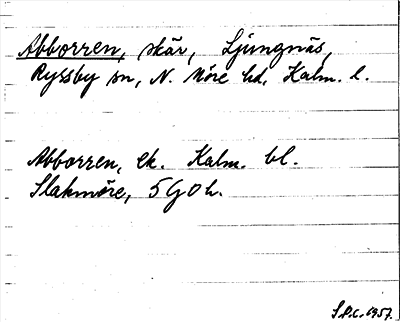 Abborren, skär, Ljungnäs,
Ryssby sn, N. Möre hd, Kalm. l.
Abborren, ek. Kalm. bl.
Slakmöre, 5 G O h.
S.P.C. 1957.